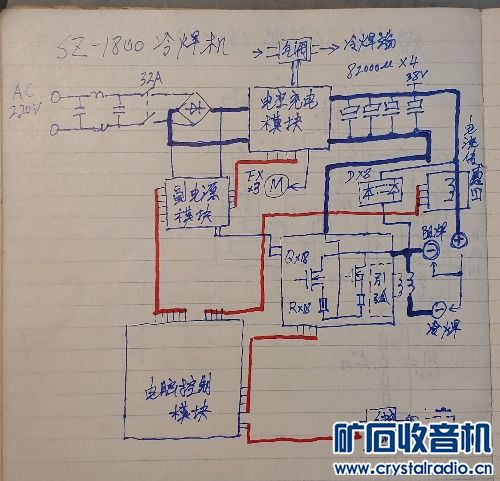 SZ-1800 冷焊机
气阀 → 冷焊端
82000u ×4
32A
38V
AC
220V
电容充电
模块
副电源
模块
FX
×3
M
D×8
电流传感
Q×18
R×18
引弧
阻焊
冷焊
电脑控制
模块
矿石收音机
www.crystalradio.cn